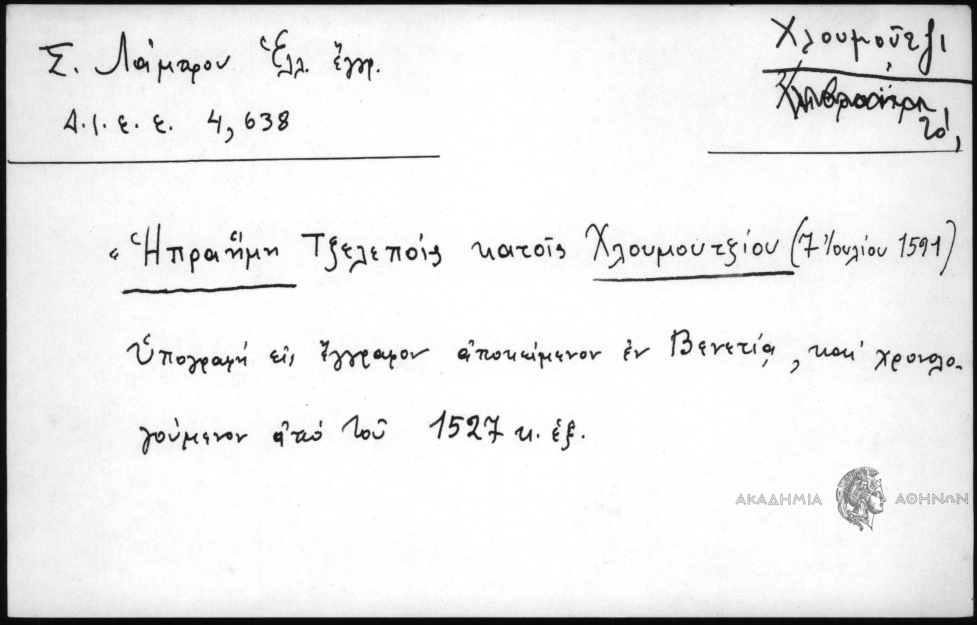 Σ. Λάμπρου Ἑλλ. ἔγγρ.
Δ.Ι.Ε.Ε. 4, 638
Χλουμοῦτζι
τό,
« Ἡπραήμη Τζελεπόϊς κατοῖς Χλουμουτζίου (7 Ἰουλίου 1591)
Ὑπογραφή εἰς ἔγγραφον ἀποκείμενον ἐν Βενετίᾳ, καί χρονολο-
γούμενον ἀπό τοῦ 1527 κ. ἑξ.
ΑΚΑΔΗΜΙΑ ΑΘΗΝΩΝ